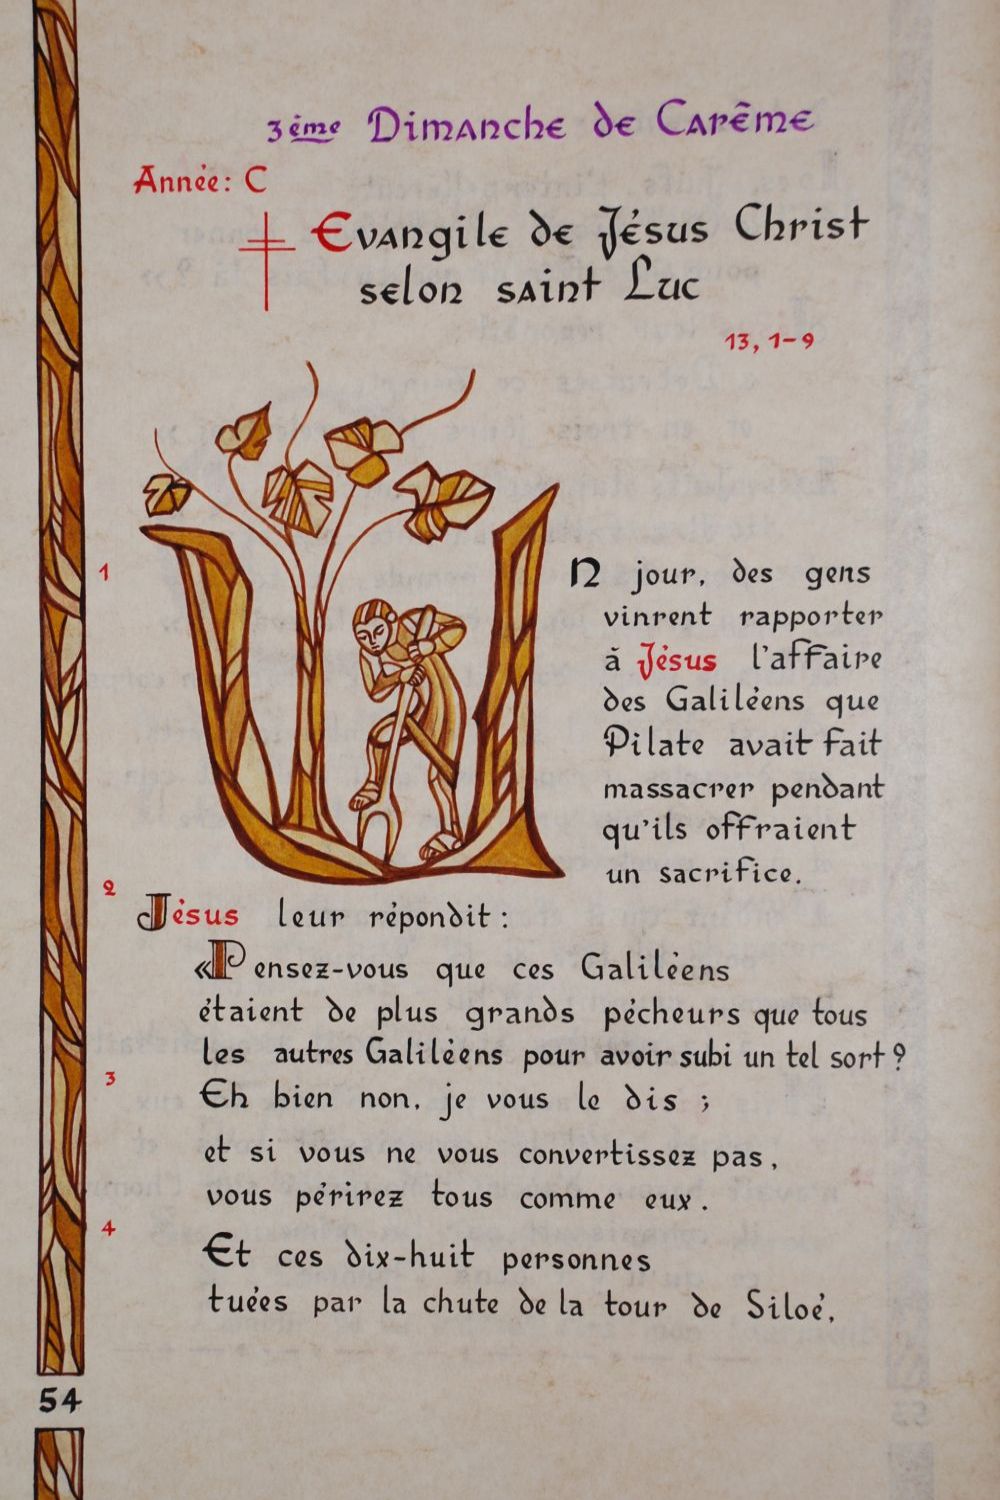 3ème Dimanche de Carême
Année: C
Evangile de Jésus Christ
selon saint Luc
13, 1-9
1 Un jour, des gens
vinrent rapporter
à Jésus l'affaire
des Galiléens que
Pilate avait fait
massacrer pendant
qu'ils offraient
un sacrifice.
2 Jésus leur répondit :
«Pensez-vous que ces Galiléens
étaient de plus grands pécheurs que tous
les autres Galiléens pour avoir subi un tel sort ?
3 Eh bien non, je vous le dis ;
et si vous ne vous convertissez pas,
vous périrez tous comme eux.
4 Et ces dix-huit personnes
tuées par la chute de la tour de Siloé,
54